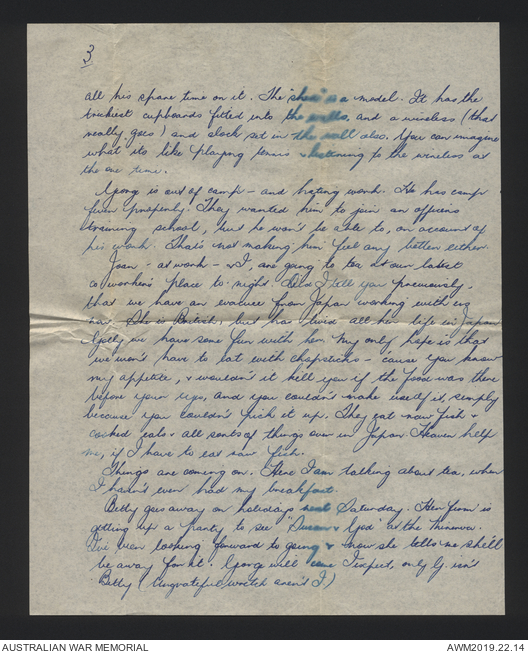 3
all his spare time on it. The "shed" is a model. It has the
trickiest cupboards fitted into the walls, and a wireless (that
really goes) and clock set in the wall also. You can imagine
what its like playing tennis & listening to the wireless at
the one time.
Georg is out of camp – and hating work. He has camp
fever properly. They wanted him to join an officers
training school, but he won't be able to, on account of
his work. That's not making him feel any better either.
Joan – at work – & I, are going to tea at our latest
co workers place to-night. Did I tell you previously,
that we have an evacuee from Japan working with us
now. She is British, but has lived all her life in Japan
Golly we have some fun with her. My only hope is that
we won't have to eat with chopsticks – 'cause you know
my appetite, & wouldn't it kill you if the food was there
before your eyes, and you couldn't make use of it, simply
because you couldn't pick it up. They eat raw fish &
cooked & all sorts of things over in Japan. Heaven help
me, if I have to eat raw fish.
Things are coming on. Here I am talking about tea, when
I hadn't even had my breakfast.
Betty goes away on holidays next Saturday. Her firm is
getting up a party to see "Susan & God" at the Minerva.
I've been looking forward to going & now she tells me she'll
be away for it. Georg will come I expect, only G. isn't
Betty (ungrateful wretch aren't I)
AUSTRALIAN WAR MEMORIAL
AWM2019.22.14